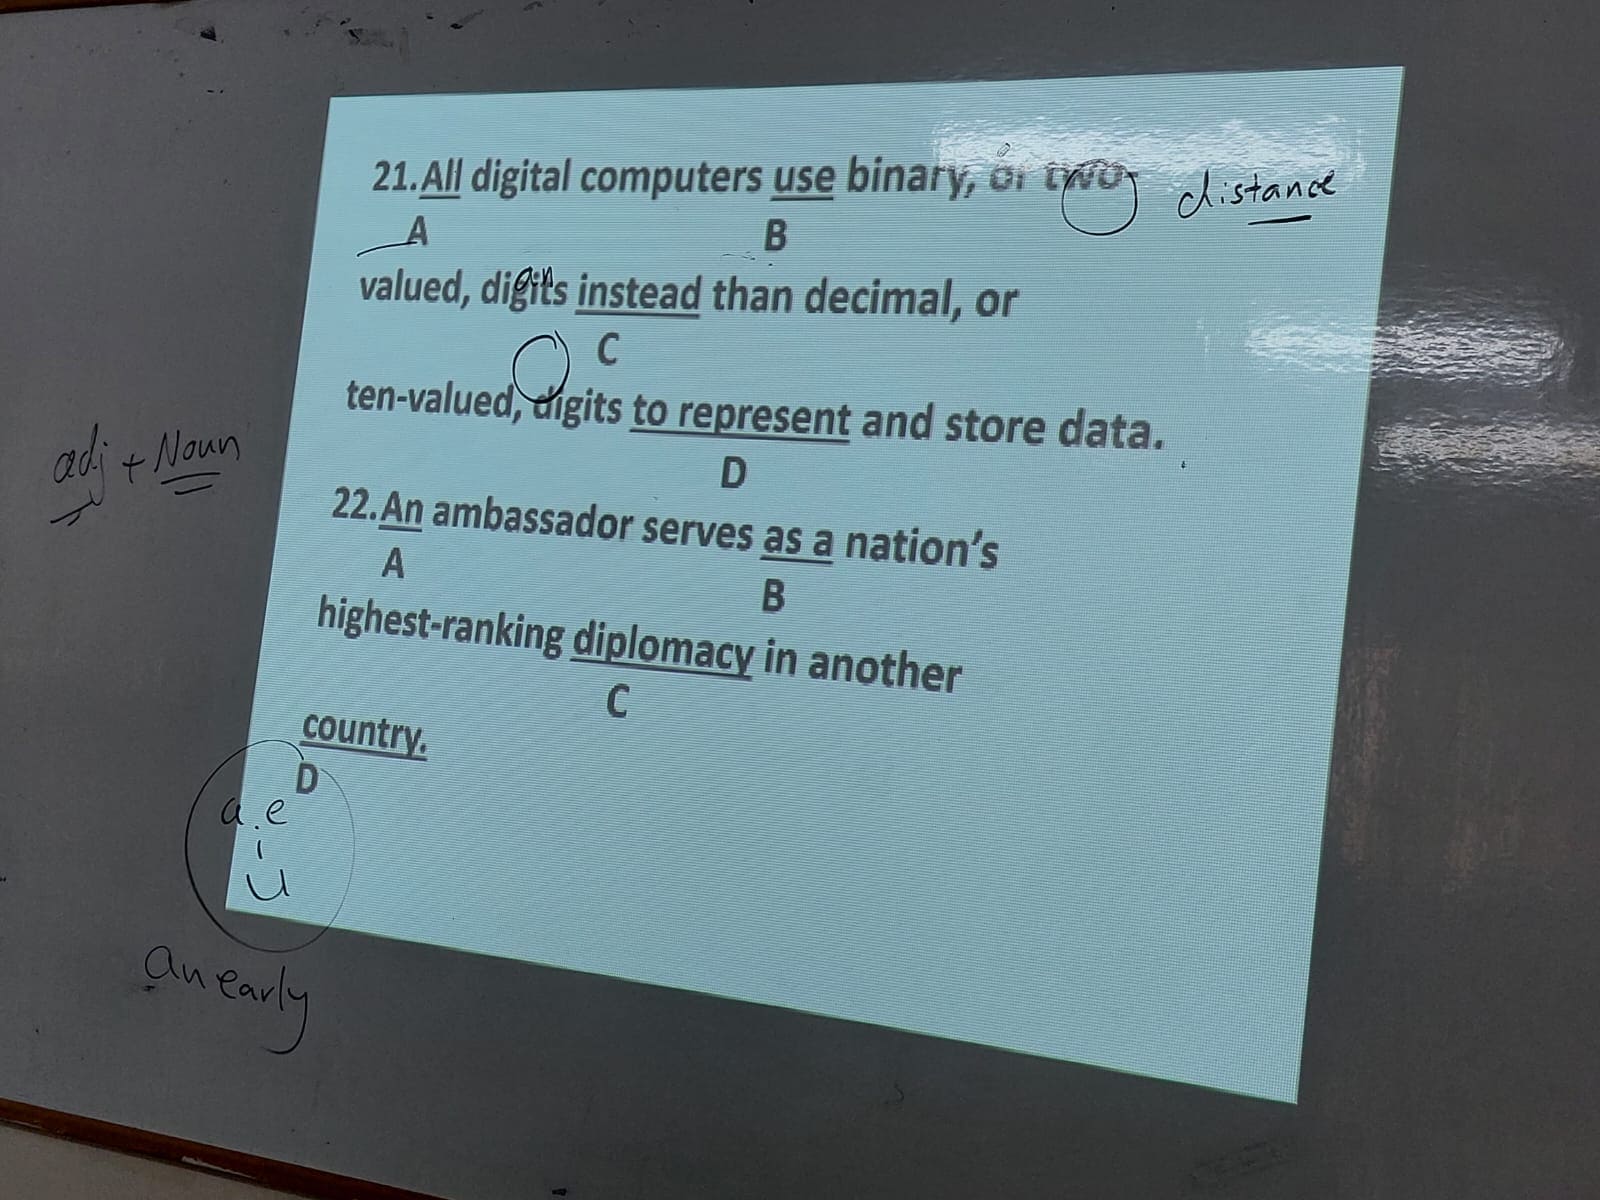 21.All digital computers use binary, or two-
distance
A B
an
valued, digits instead than decimal, or
C
ten-valued, digits to represent and store data.
D
adj + Noun
22.An ambassador serves as a nation's
A B
highest-ranking diplomacy in another
C
country.
D
a e
i
u
an early